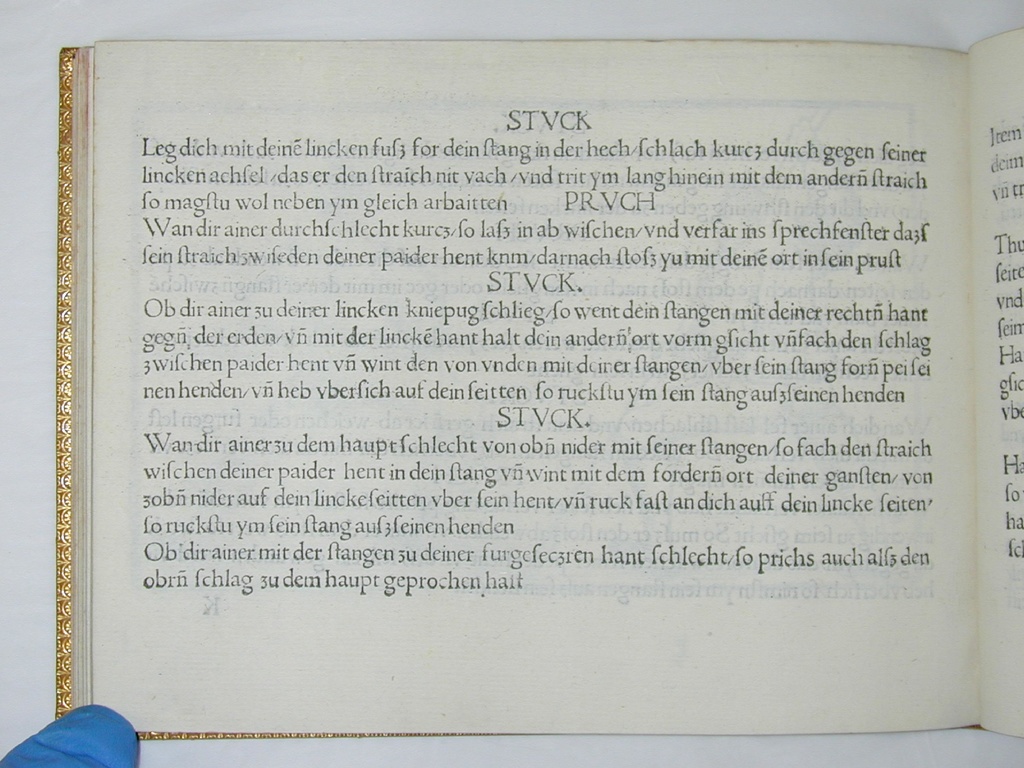 STVCK
Leg dich mit deinē lincken fuſʒ for dein ſtang in der hech/ſchlach kurcʒ durch gegen ſeiner
lincken achſel/das er den ſtraich nit vach/vnd trit ym lang hinein mit dem anderñ ſtraich
ſo magſtu wol neben ym gleich arbaitten PRVCH
Wan dir ainer durchſchlecht kurcʒ/ſo laſʒ in ab wiſchen/vnd verfar ins ſprechfenſter daʒſ
ſein ſtraich ʒwiſeden deiner paider hent knm/darnach ſtoſʒ yu mit deinē ort in ſein pruſt
STVCK.
Ob dir ainer ʒu deiner lincken kniepug ſchlieg/ſo went dein ſtangen mit deiner rechtñ hant
gegñ der erden/vñ mit der linckē hant halt dein anderñ ort vorm gſicht vñ fach den ſchlag
ʒwiſchen paider hent vñ wint den von vnden mit deiner ſtangen/vber ſein ſtang forñ pei ſei
nen henden/vñ heb vberſich auf dein ſeitten ſo ruckſtu ym ſein ſtang auſʒ ſeinen henden
STVCK.
Wan dir ainer ʒu dem haupt ſchlecht von obñ nider mit ſeiner ſtangen/ſo fach den ſtraich
wiſchen deiner paider hent in dein ſtang vñ wint mit dem forderñ ort deiner ganſten/von
ʒobñ nider auf dein lincke ſeitten vber ſein hent/vñ ruck faſt an dich auff dein lincke ſeiten/
ſo ruckſtu ym ſein ſtang auſʒ ſeinen henden
Ob dir ainer mit der ſtangen ʒu deiner furgeſecʒten hant ſchlecht/ſo prichs auch alſʒ den
obrñ ſchlag ʒu dem haupt geprochen haſt
K
Item
deim
vñ tr
Thu
ſeite
vnd
ſeim
Ha
gſic
vbe
Ha
ſo
ha
ſch